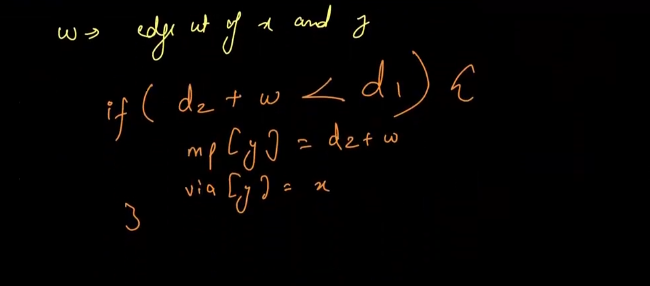 w => edge wt of x and y
if ( d2 + w < d1 ) {
mp[y] = d2 + w
via[y] = x
}